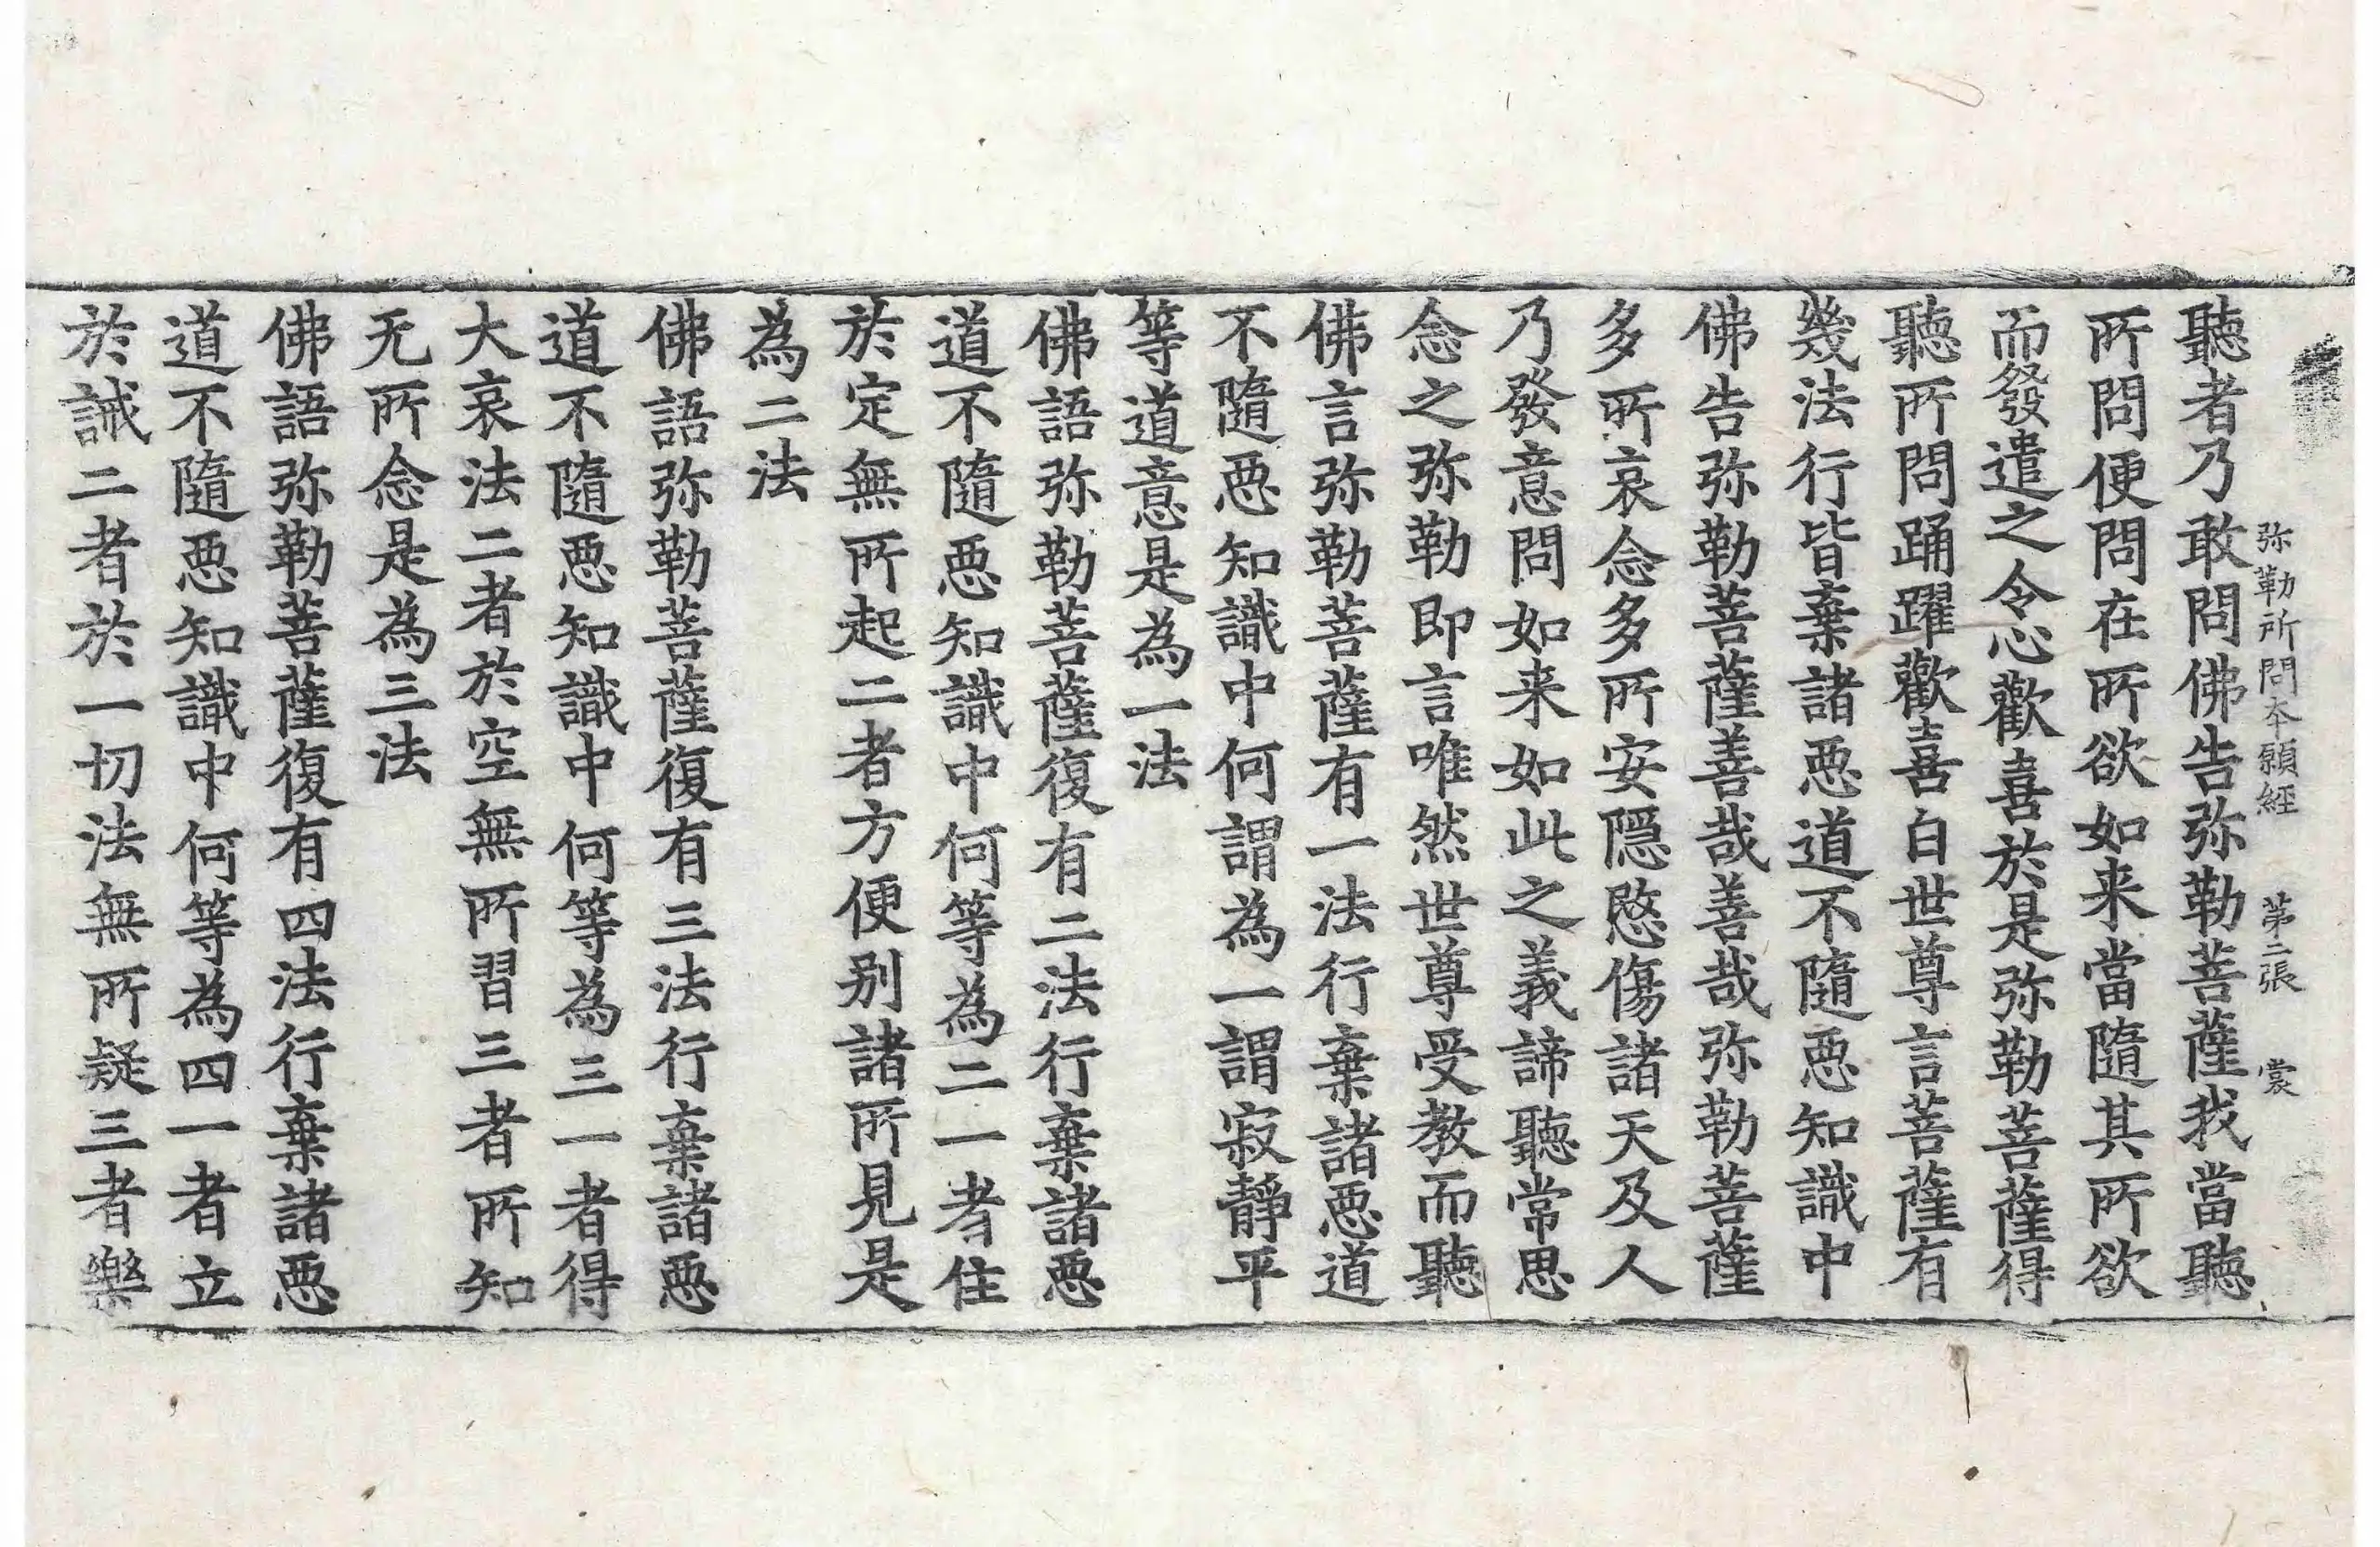 弥勒所問本願經 第二張 裳
聽者乃敢問佛告弥勒菩薩我當聽
所問便問在所欲如来當隨其所欲
而發遣之令心歡喜於是弥勒菩薩得
聽所問踊躍歡喜白世尊言菩薩有
幾法行皆棄諸惡道不隨惡知識中
佛告弥勒菩薩善哉善哉弥勒菩薩
多所哀念多所安隱愍傷諸天及人
乃發意問如来如此之義諦聽常思
念之弥勒即言唯然世尊受教而聽
佛言弥勒菩薩有一法行棄諸惡道
不隨惡知識中何謂為一謂寂靜平
等道意是為一法
佛語弥勒菩薩復有二法行棄諸惡
道不隨惡知識中何等為二一者住
於定無所起二者方便別諸所見是
為二法
佛語弥勒菩薩復有三法行棄諸惡
道不隨惡知識中何等為三一者得
大哀法二者於空無所習三者所知
无所念是為三法
佛語弥勒菩薩復有四法行棄諸惡
道不隨惡知識中何等為四一者立
於誡二者於一切法無所疑三者樂